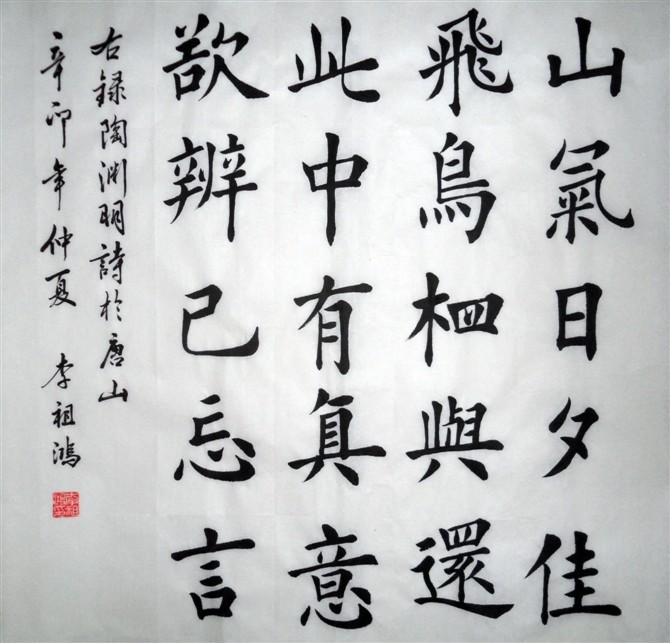 山氣日夕佳
飛鳥相與還
此中有真意
欲辨已忘言
右録陶渊明詩於唐山
辛卯年仲夏 李祖鴻